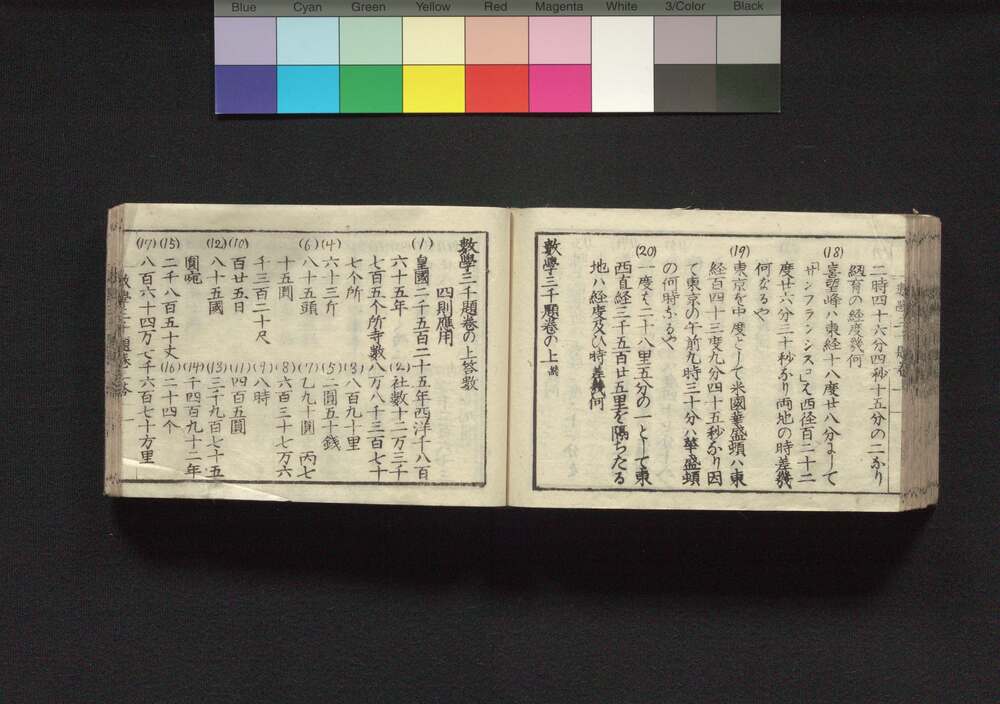 Blue Cyan Green Yellow Red Magenta White 3/Color Black
二時四十六分四秒十五分の二なり
紐育の経度幾何
(18) 喜望峰ハ東経十八度廿八分にして
サンフランシスコハ西径百二十二
度廿六分三十秒なり両地の時差幾
何なるや
(19) 東京を中度として米國華盛頓ハ東
経百四十三度九分四十五秒なり因
て東京の午前九時三十分ハ華盛頓
の何時なるや
(20) 一度を二十八里五分の一として東
西直経三千五百廿五里を隔ちたる
地ハ経度及ひ時差幾何
數學三千題卷の上
數學三千題卷の上答數
四則應用
(1) 皇國二千五百二十五年西洋千八百
六十五年 (2) 社數十二万三千
七百五个所寺數八万八千三百七十
七个所 (3) 八百九十里
(4) 六十三斤 (5) 二圓五十銭
(6) 八十五頭 (7) 乙九十圓 丙七
十五圓 (8) 六百三十七万六
千三百二十尺 (9) 八時
(10) 百廿五日 (11) 四百五圓
(12) 八十五國 (13) 三千九百七十五
圓宛 (14) 千四百九十二年
(15) 二千八百五十丈 (16) 二十四个
(17) 八百六十四万七千六百七十方里